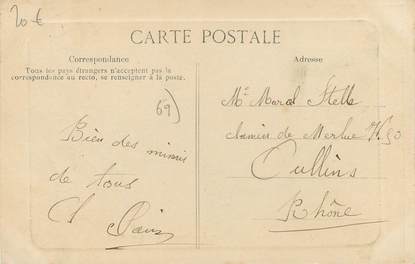 20 €
CARTE POSTALE
Correspondance
Tous les pays étrangers n'acceptent pas la
correspondance au recto, se renseigner à la poste.
Adresse
69)
Bien des mimis
de tous
Mr Marcel Stelle
chemin de Merlue No 50
Oullins
Rhône